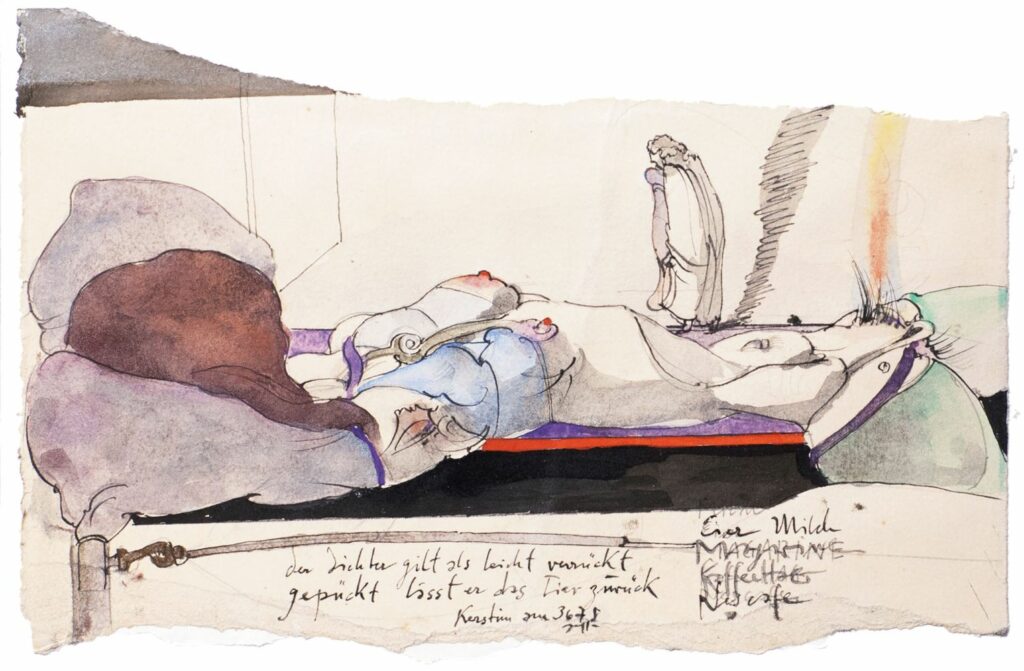 der Dichter gilt als leicht verrückt
gepückt lässt er das Tier zurück
Kerstin am 3678
Eier Milch
MAGARINE
Nescafe